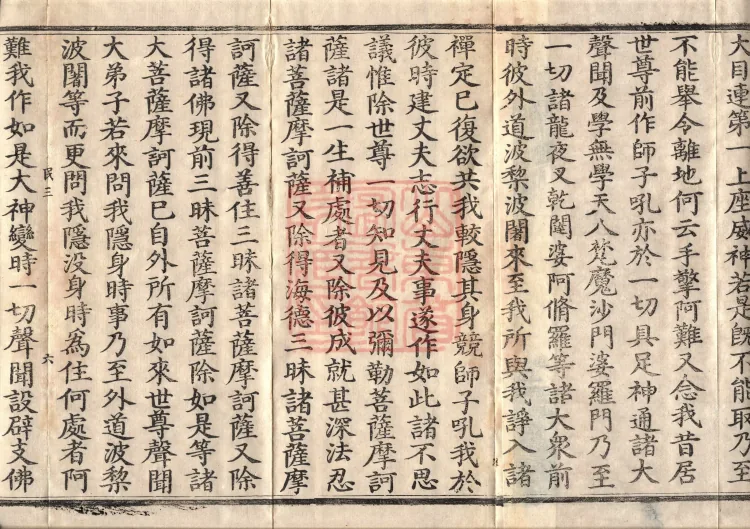 大目連第一上座威神若是旣不能取乃至
不能舉令離地何云手擎阿難又念我昔居
世尊前作師子吼亦於一切具足神通諸大
聲聞及學無學天人梵魔沙門婆羅門乃至
一切諸龍夜叉乾闥婆阿脩羅等諸大衆前
時彼外道波黎波闍來至我所與我諍入諸
禪定已復欲共我較隱其身競師子吼我於
彼時建丈夫志行丈夫事遂作如此諸不思
議惟除世尊一切知見及以彌勒菩薩摩訶
薩諸是一生補處者又除彼成就甚深法忍
諸菩薩摩訶薩又除得海德三昧諸菩薩摩
訶薩又除得善住三昧諸菩薩摩訶薩又除
得諸佛現前三昧菩薩摩訶薩除如是等諸
大菩薩摩訶薩已自外所有如來世尊聲聞
大弟子若來問我隱身時事乃至外道波黎
波闍等而更問我隱没身時為住何處者阿
民三
六
難我作如是大神變時一切聲聞設辟支佛